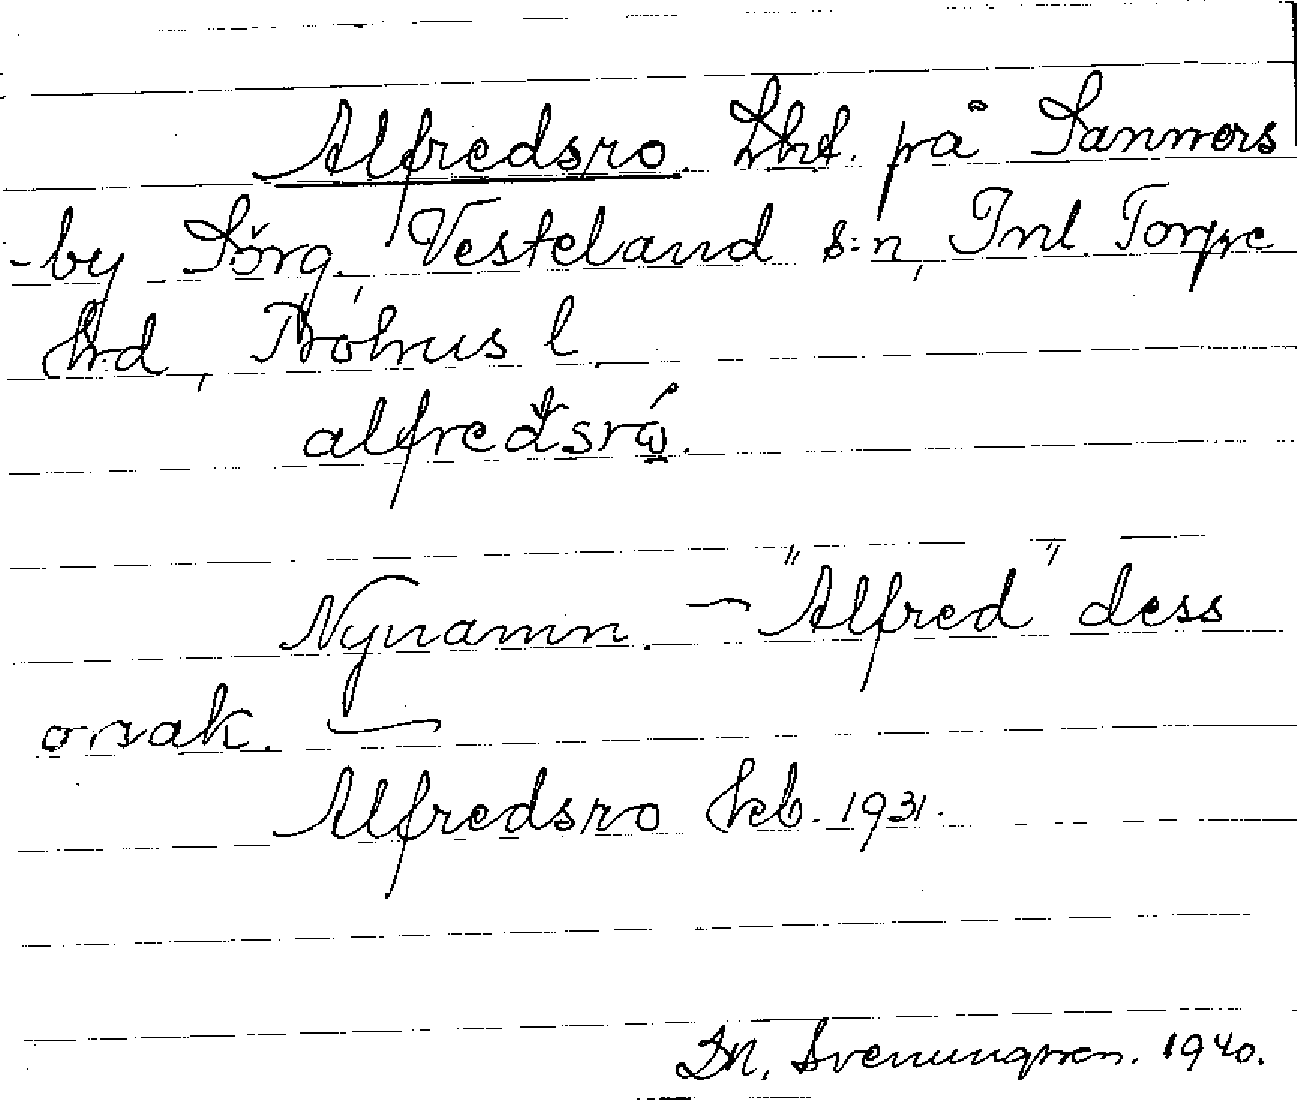 Alfredsro. Lht. på Sanners
-by Sörg. Vesteland s:n, Inl. Torpe
hrd, Bohus l.
alfredsró.
Nynamn. – "Alfred" dess
orsak. –
Alfredsro Heb. 1931.
Svenungsson. 1940.